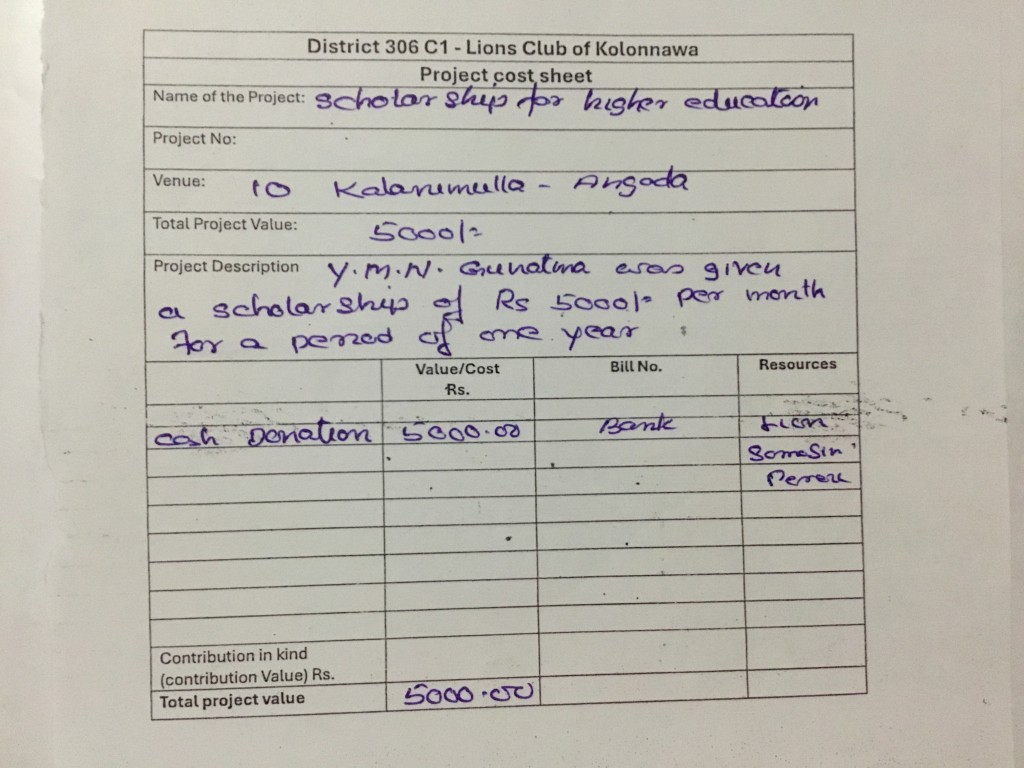 District 306 C1 - Lions Club of Kolonnawa
Project cost sheet
Name of the Project: Scholarship for higher education
Project No:
Venue: 10 Kalanimulla - Angoda
Total Project Value: 5000/=
Project Description Y.M.N. Gunatma was given
a scholarship of Rs 5000/= per month
for a period of one year
Value/Cost Rs. Bill No. Resources
Cash Donation 5000.00 Bank Lion
SomaSiri
Perera
Contribution in kind
(contribution Value) Rs.
Total project value 5000.00